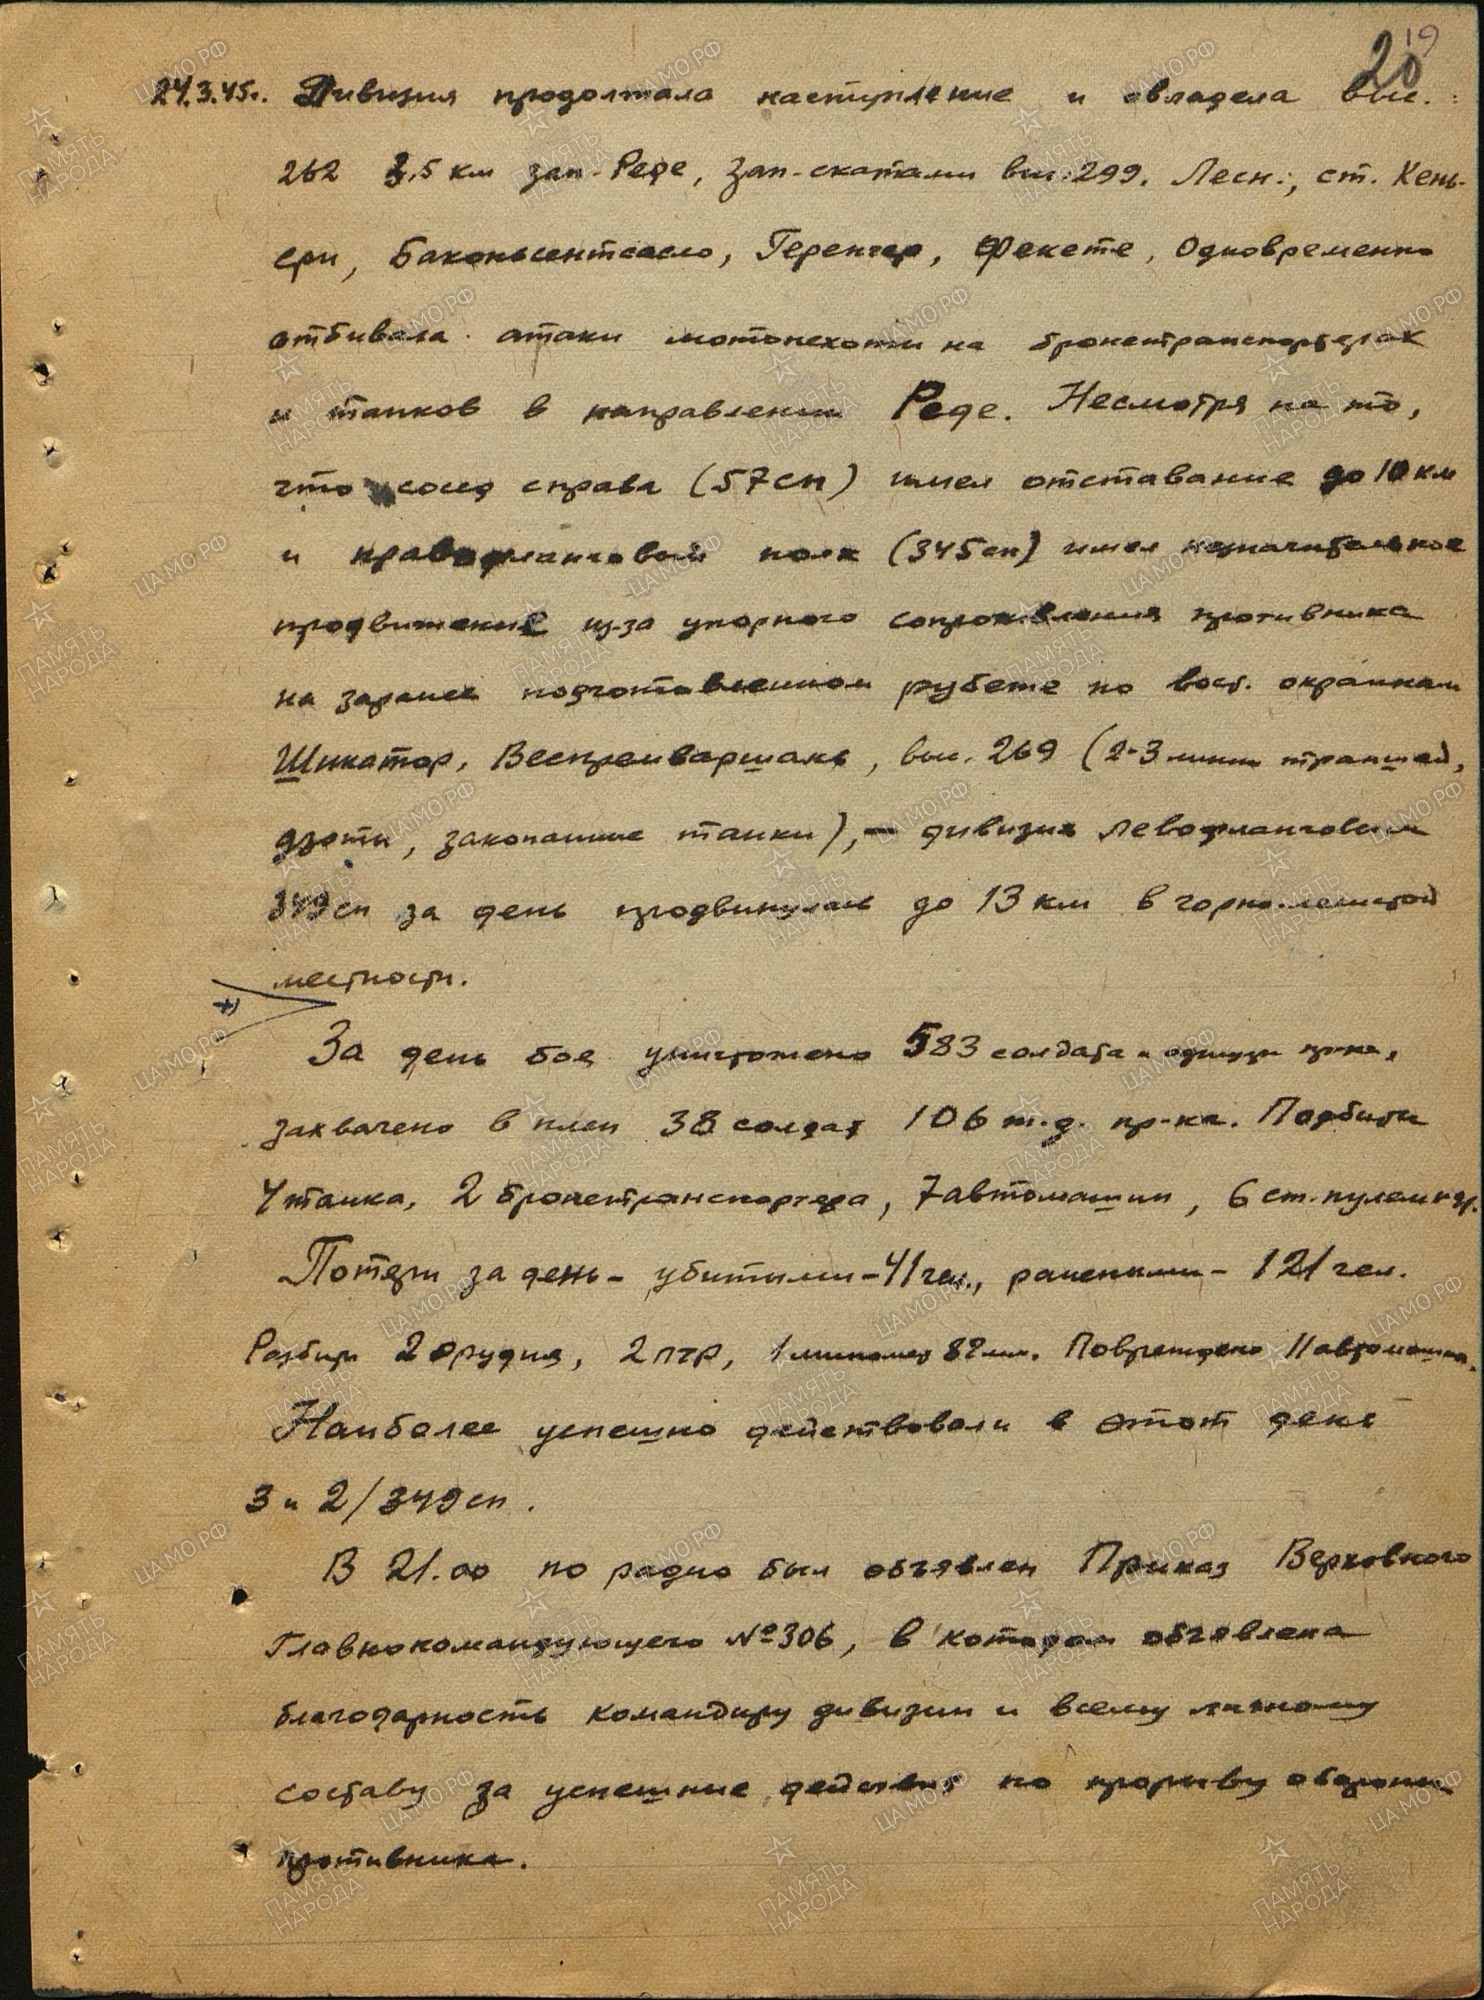 19
20
24.3.45г. Дивизия продолжала наступление и овладела выс.
262 3,5 км зап. Реде, зап. скатами выс. 299. Лесн., ст. Кень-
ери, Баконьсентсасло, Геренчер, Фекете, Одновременно
отбивала атаки мотопехоты на бронетранспортерах
и танков в направлении Реде. Несмотря на то,
что сосед справа (57сп) имел отставание до 10 км
и правофланговый полк (345сп) имел незначительное
продвижение из-за упорного сопротивления противника
на заранее подготовленном рубеже по вост. окраинам
Шикатор, Веспремваршань, выс. 269 (2-3 линии траншей,
дзоты, закопанные танки), – дивизия левофланговым
349сп за день продвинулась до 13 км в горно-лесистой
местности.
За день боя уничтожено 583 солдата и офицера пр-ка,
захвачено в плен 38 солдат 106 т.д. пр-ка. Подбиты
4 танка, 2 бронетранспортера, 7 автомашин, 6 ст. пулеметов.
Потери за день – убитыми – 41 чел., ранеными – 121 чел.
Разбиты 2 орудия, 2 птр, 1 миномет 82мм. Повреждено 11 автомашин.
Наиболее успешно действовали в этот день
3 и 2/349сп.
В 21.00 по радио был объявлен Приказ Верховного
Главнокомандующего №306, в котором объявлена
благодарность командиру дивизии и всему личному
составу за успешные действия по прорыву обороны
противника.
ПАМЯТЬ НАРОДА
ЦАМО.РФ